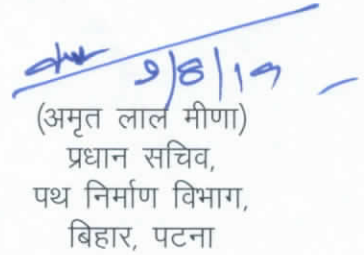 9/8/19
(अमृत लाल मीणा)
प्रधान सचिव,
पथ निर्माण विभाग,
बिहार, पटना